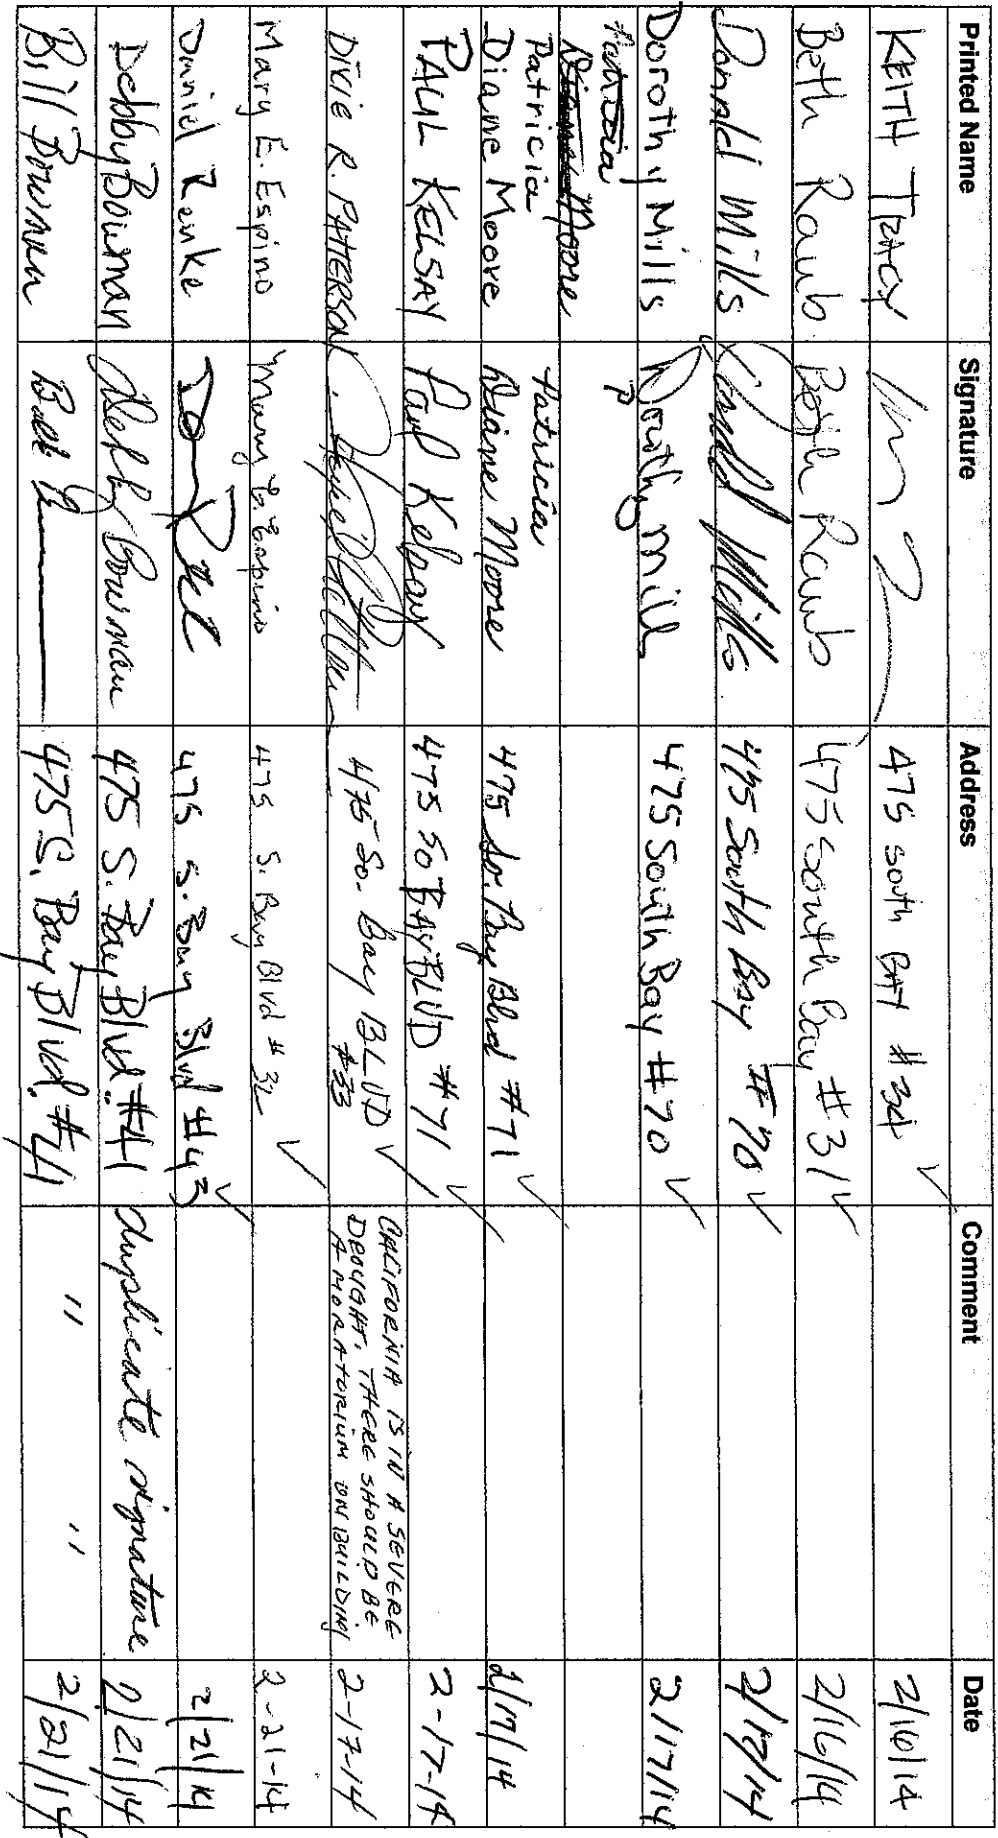 Printed Name Signature Address Comment Date
KEITH TRACY 475 South BAY #34 ✓ 2/16/14
Beth Raub Beth Raub 475 South Bay #31 ✓ 2/16/14
Donald Mills Donald Mills 475 South Bay #70 ✓ 2/17/14
Dorothy Mills Dorothy Mills 475 South Bay #70 ✓ 2/17/14
Patricia
Diane Moore
Patricia Patricia
Diane Moore Diane Moore 475 So. Bay Blvd #71 ✓ 2/17/14
PAUL KELSAY Paul Kelsay 475 SO BAY BLVD #71 ✓ 2-17-14
DIXIE R. PATTERSON 475 So. Bay BLVD ✓ CALIFORNIA IS IN A SEVERE 2-17-14
#33 DROUGHT, THERE SHOULD BE
A MORATORIUM ON BUILDING
Mary E. Espino Mary E. Espino 475 S. Bay Blvd #32 ✓ 2-21-14
Daniel Renke 475 S. Bay Blvd #43 ✓ 2/21/14
Debby Bowman Debby Bowman 475 S. Bay Blvd. #41 duplicate signature 2/21/14
Bill Bowman 475 S. Bay Blvd. #41 " " 2/21/14